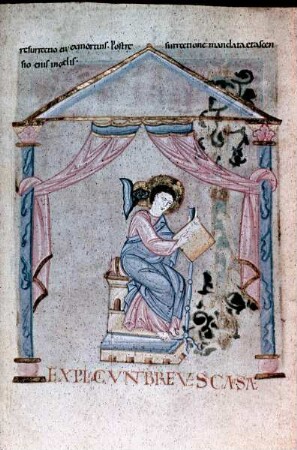 resurrectio ei amortuis. Postre surrectione mandata etascen
sio eius incelis.
EXPLICVNBREVESCAVSAE